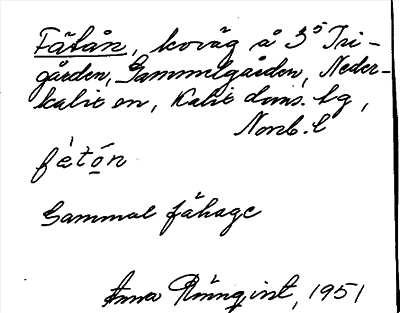 Fätån, koväg å 3⁵ Tri-
gården, Gammelgården, Neder-
kalix sn, Kalix doms. lg,
Nonb. l
fètó̲n
Gammal fähage
Anna Rönnqvist, 1951